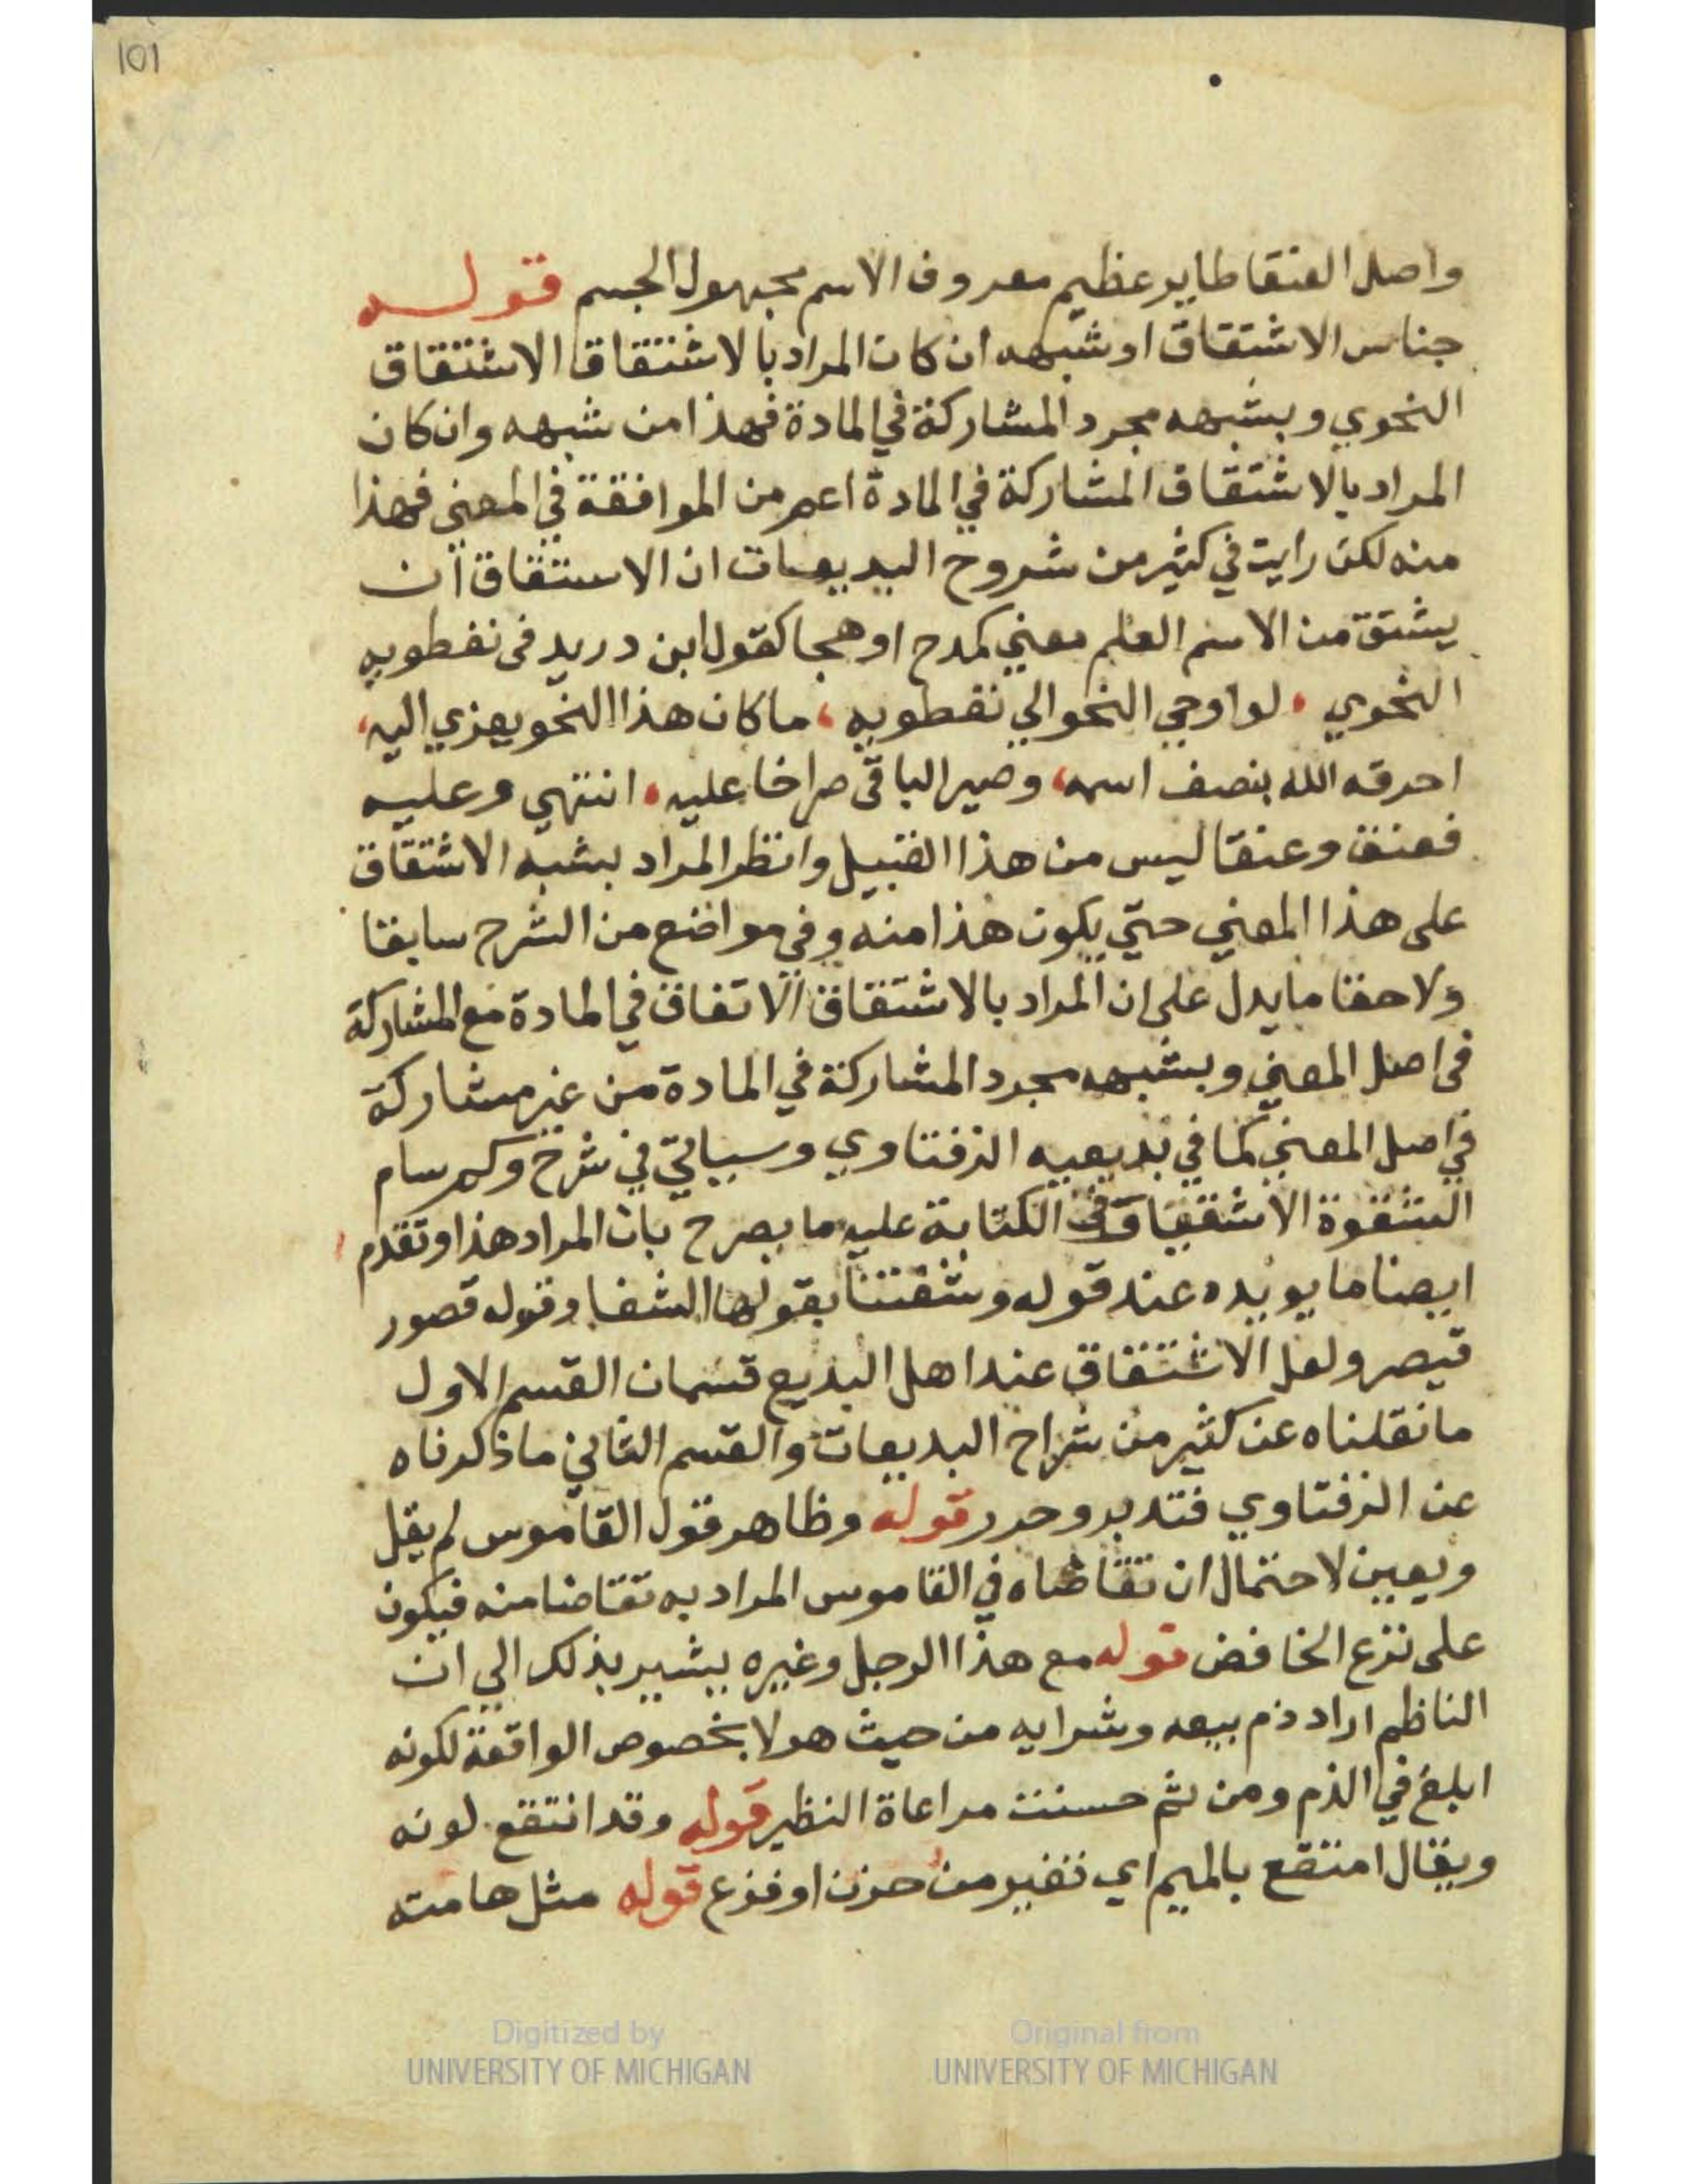 101
واصل العنقا طاير عظيم معروف الاسم مجهول الجسم قوله
جناس الاشتقاق او شبهه ان كان المراد بالاشتقاق الاشتقاق
النحوي وبشبهه مجرد المشاركة في المادة فهذا من شبهه وان كان
المراد بالاشتقاق المشاركة في المادة اعم من الموافقة في المعني فهذا
منه لكن رايت في كثير من شروح البديعيات ان الاستقاق ان
يشتق من الاسم العلم معني كمدح او هجا كقول ابن دريد فى نفطويه
النحوي ، لو اوحي النحو الي نفطويه ، ما كان هذا النحو يعزي اليه ،
احرقه الله بنصف اسمه ، وصير الباقى صراخا عليه ، انتهي وعليه
فعنق وعنقا ليس من هذا القبيل وانظر المراد بشبه الاشتقاق
على هذا المعني حتي يكون هذا منه وفي مواضع من الشرح سابقا
ولاحقا ما يدل على ان المراد بالاشتقاق الاتفاق في المادة مع المشاركة
فى اصل المعني وبشبهه مجرد المشاركة في المادة من غير مشاركة
في اصل المعني كما في بديعيه الزفتاوي وسياتي في شرح وكم سام
الشقوة الاشقياء في الكتابة عليه ما يصرح بان المراد هذا وتقدم
ايضا ما يويده عند قوله وشفتنا بقولها الشفا وقوله قصور
قيصر ولعل الاشتقاق عند اهل البديع قسمان القسم الاول
ما نقلناه عن كثير من شراح البديعات والقسم الثاني ما ذكرناه
عن الزفتاوي فتدبر وحرر قوله وظاهر قول القاموس لم يقل
ويعين لاحتمال ان تقاضاه في القاموس المراد به تقاضا منه فيكون
على نزع الخافض قوله مع هذا الرجل وغيره يشير بذلك الي ان
الناظم اراد ذم بيعه وشرايه من حيث هو لا بخصوص الواقعة لكونه
ابلغ في الذم ومن ثم حسنت مراعاة النظير قوله وقد انتقع لونه
ويقال امتقع بالميم اي تغير من حزن او فزع قوله مثل هامته
Digitized by
UNIVERSITY OF MICHIGAN
Original from
UNIVERSITY OF MICHIGAN